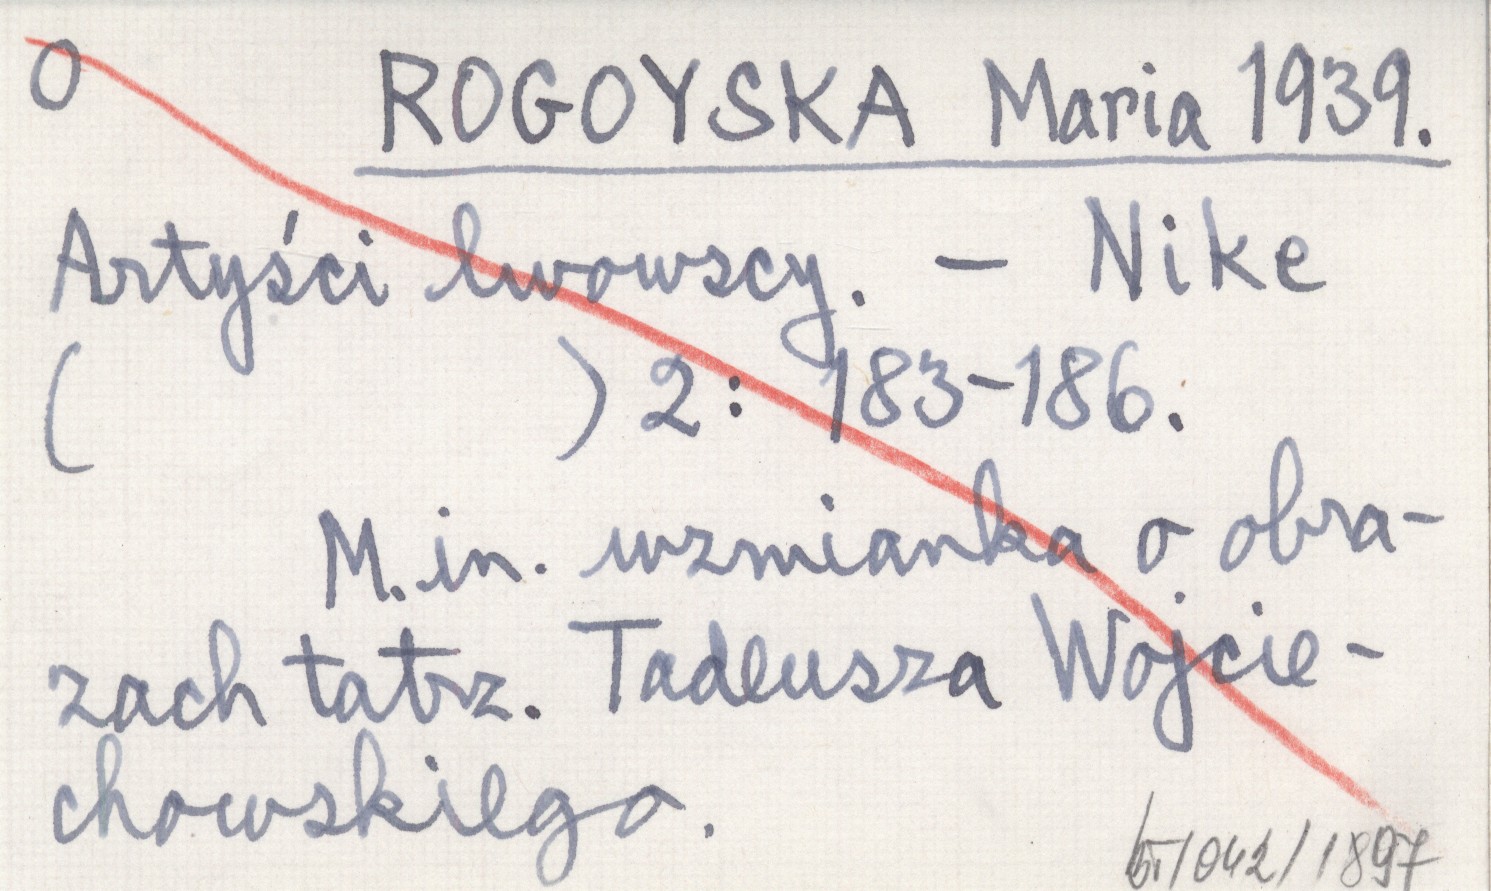 O ROGOYSKA Maria 1939.
Artyści lwowscy. — Nike
( ) 2: 183-186.
M.in. wzmianka o obra-
zach tatrz. Tadeusza Wojcie-
chowskiego.
/042/1897